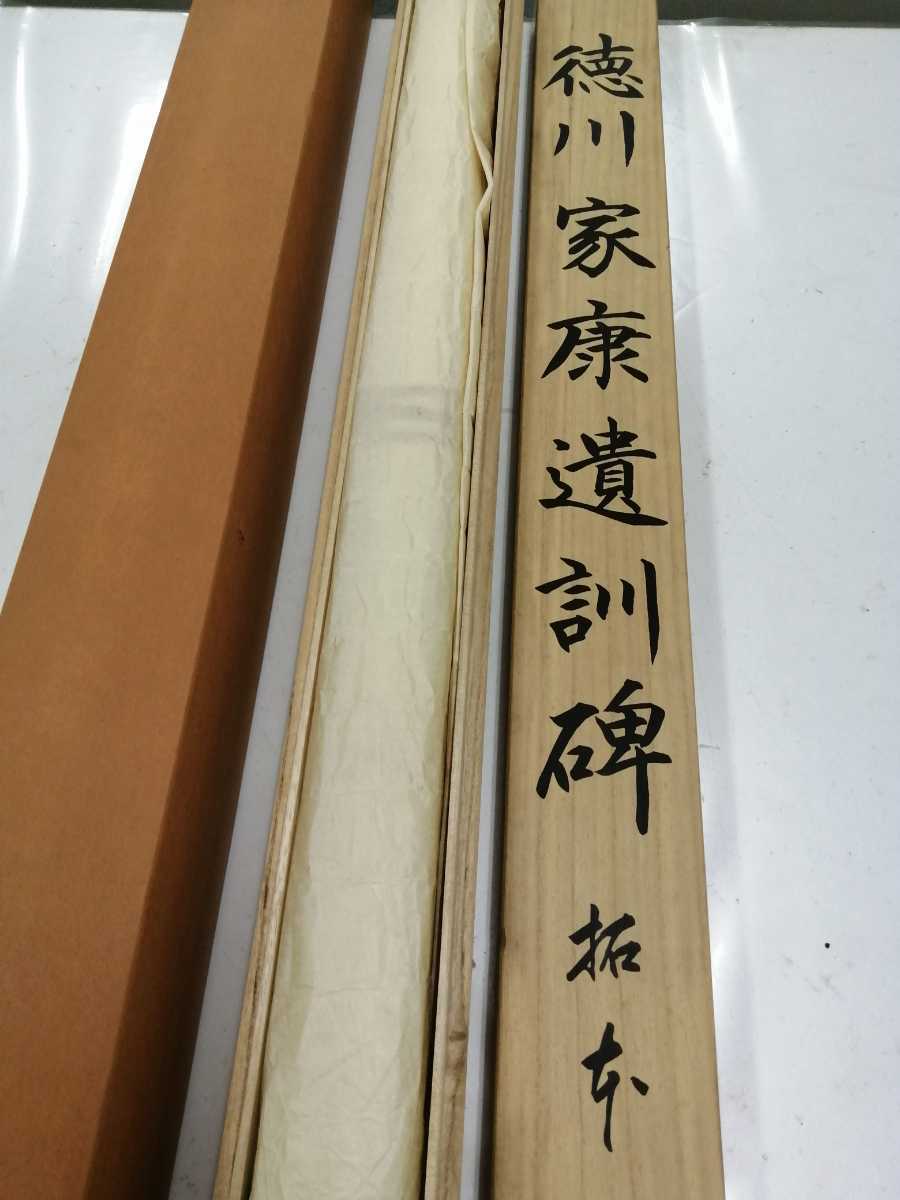 徳川家康遺訓碑 拓本